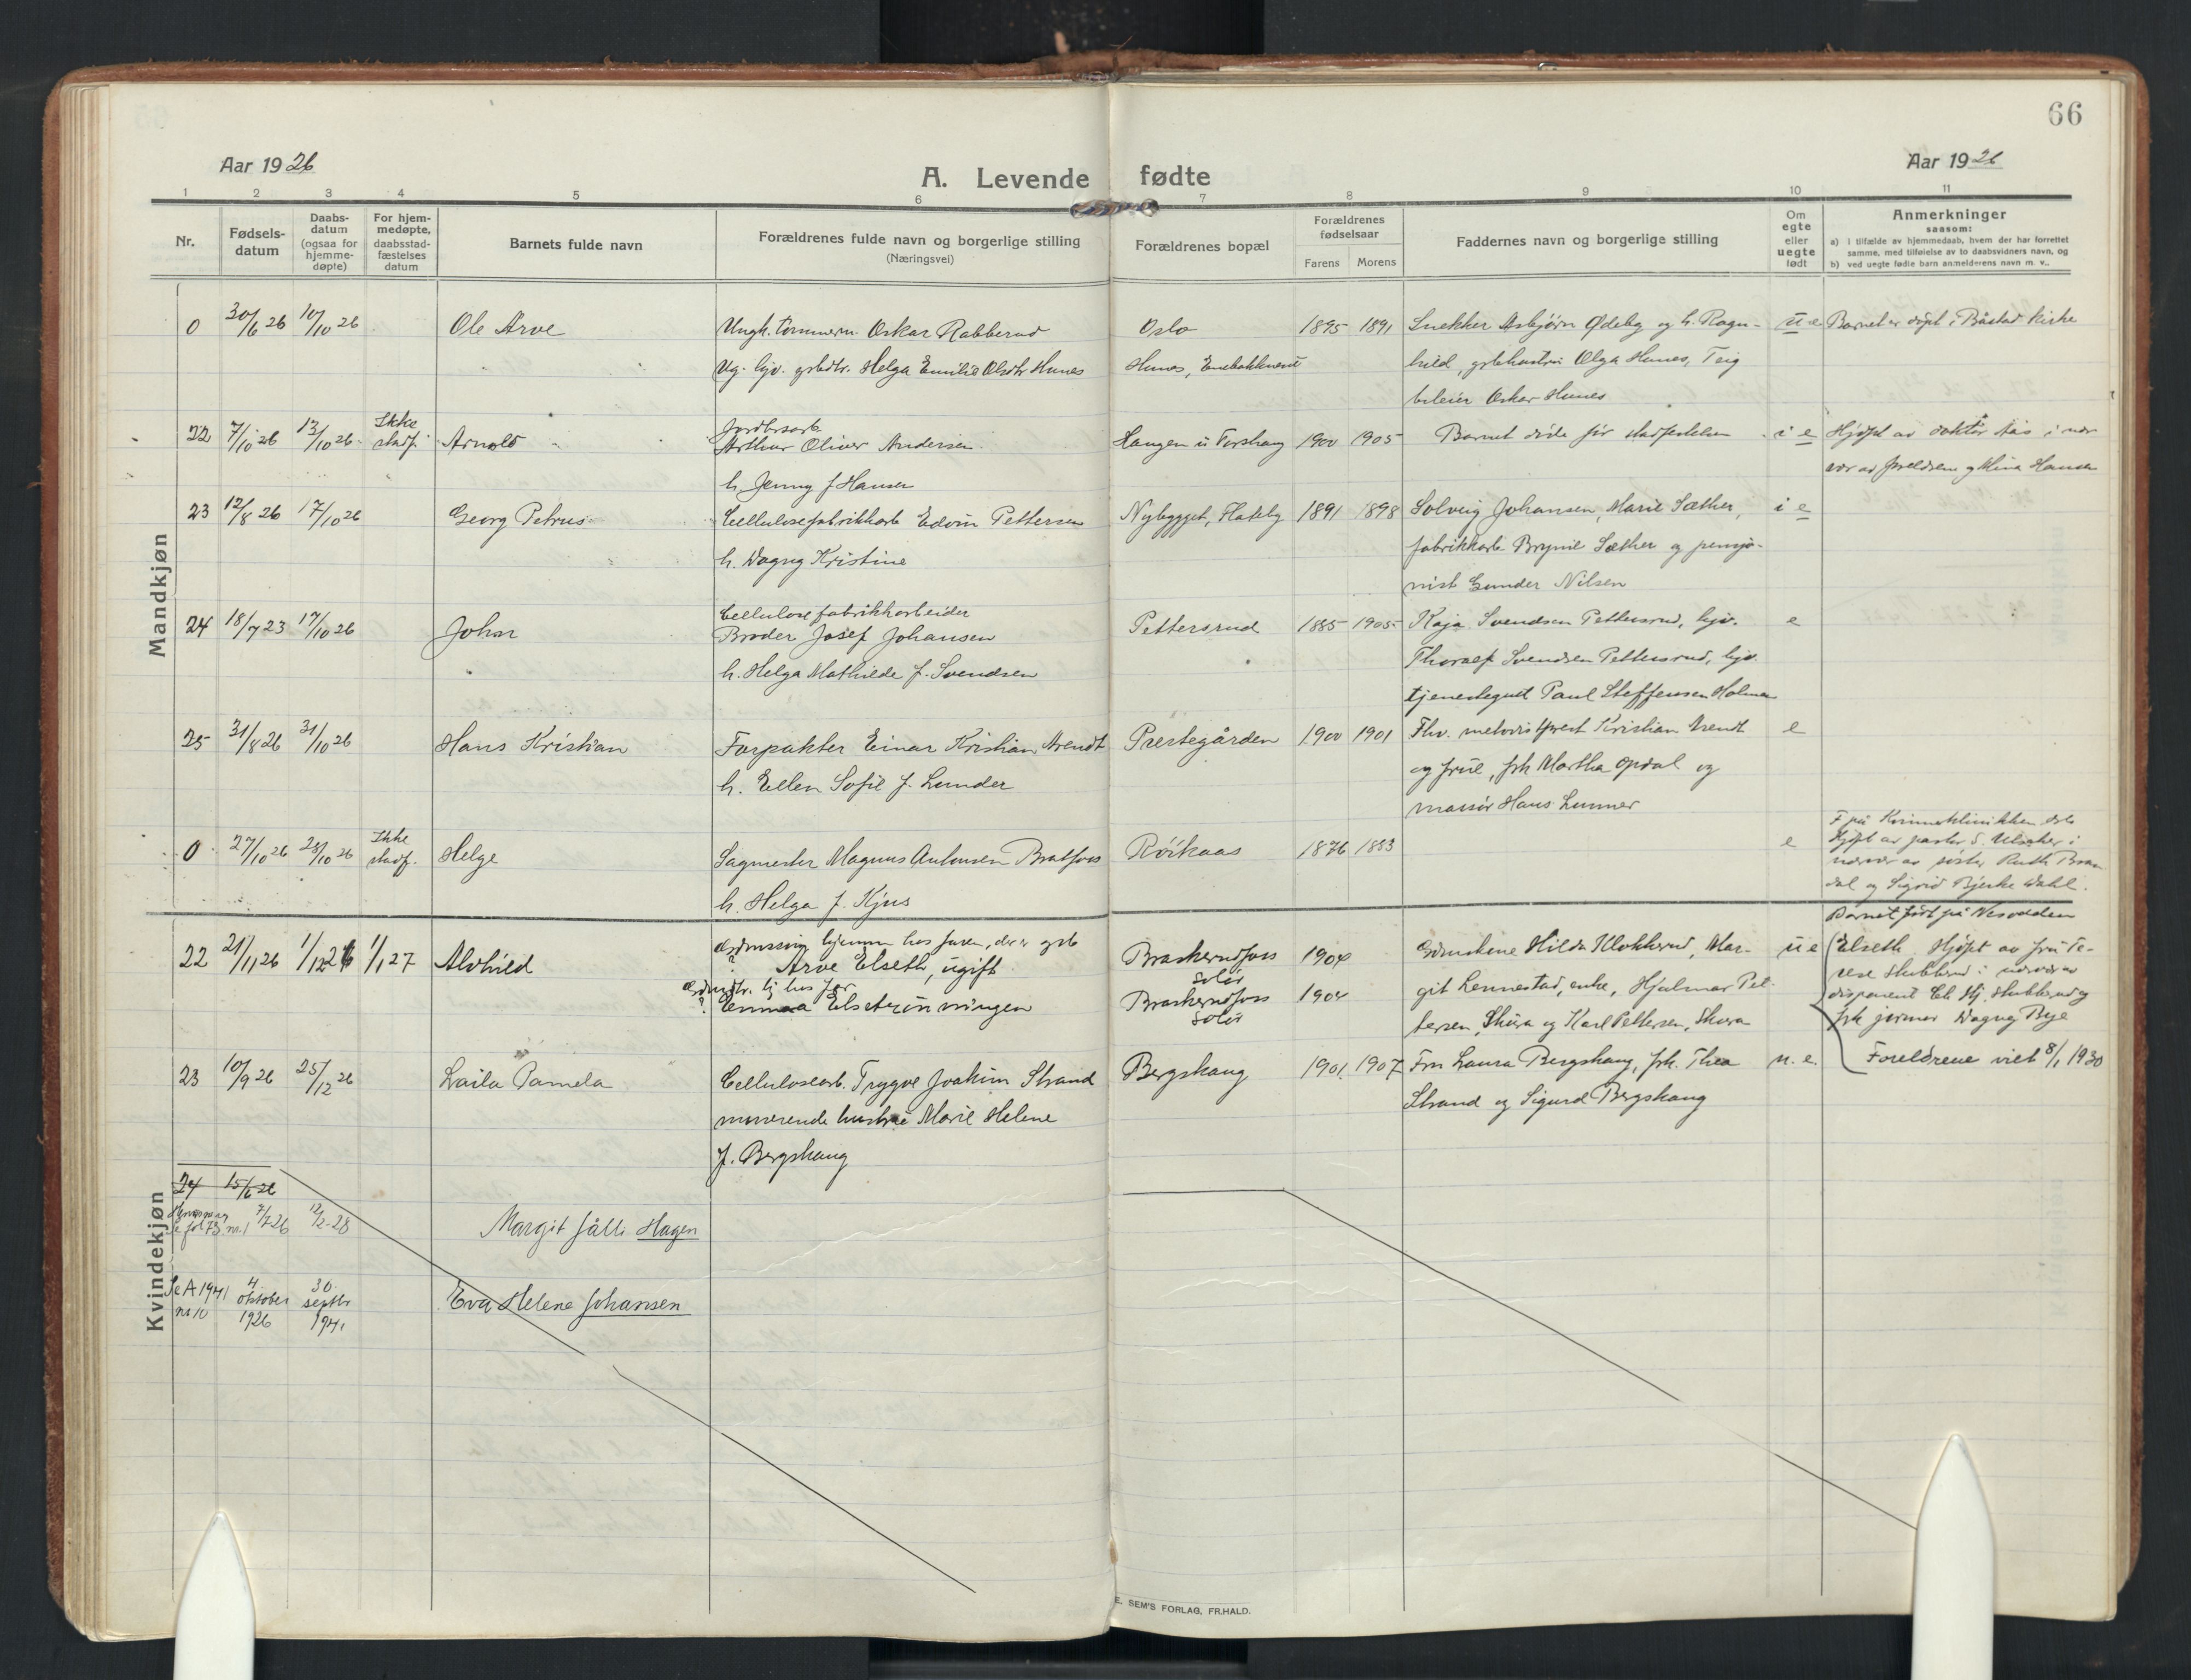 66
Aar 1926
A. Levende fødte
Aar 1926
1 2 3 4 5 6 7 8 9 10 11
Nr.
Fødsels-
datum
Daabs-
datum
(ogsaa for
hjemme-
døpte)
For hjem-
medøpte,
daabsstad-
fæstelses
datum
Barnets fulde navn
Forældrenes fulde navn og borgerlige stilling
(Næringsvei)
Forældrenes bopæl
Forældrenes
fødselsaar
Farens Morens
Faddernes navn og borgerlige stilling
Om
egte
eller
uegte
født
Anmerkninger
saasom:
a) i tilfælde av hjemmedaab, hvem der har forrettet
samme, med tilføielse av to daabsvidners navn, og
b) ved uegte fødte barn anmelderens navn m. v..
Mandkjøn
0 30/6 26 10/10 26 Ole Arve Ungk. Oskar Rabberud Oslo 1895 1891 Snekker Asbjørn Ødeby og h. Ragn- u e Barnet er døpt i Båstad kirke
Ug. hjv. grbdtr. Helga Emilie Olsdtr Hunes Hunes, hild, grbhustru Olga Hunes, Teig
bileier Oskar Hunes
22 7/10 26 13/10 26 Ikke
stadf. Arnold Jordbrsarb.
Arthur Oliver Andersen Haugen u Forshaug 1900 1905 Barnet døde før stadfestelsen i e Hjdøpt av doktor Aas i nær
h. Jenny f Hansen vær av foreldrene og Mina Hansen
23 12/8 26 17/10 26 Georg Petrus Cellulosefabrikkarb Edvin Pettersen Nybygget, Flateby 1891 1898 Solveig Johansen, Marie Sæther, i e
h. Dagny Kristine fabrikkarb. Sæther og pensjo-
nist Gunder Nilsen
24 18/7 23 17/10 26 Johan Cellulosefabrikkarbeider
Broder Josef Johansen Pettersrud 1885 1905 Kaja Svendsen Pettersrud, hjv. e
h. Helga Mathilde f. Svendsen Thoralf Svendsen Pettersrud, hjv.
tjenestegut Paul Steffensen Holmen
25 31/8 26 31/10 26 Hans Kristian Forpakter Einar Kristian Arendt Prestegården 1900 1901 Fhv. metodistprest Kristian Arendt e
h. Ellen Sofie f. Lunder og frue, frk Martha Opdal og
massør Hans Lunner
0 27/10 26 28/10 26 Ikke
stadf. Helge Sagmester Magnus Antonsen Bratfoss Röikaas 1876 1883 e F på Kvinneklinikken Oslo
Hjdøpt av pastor S. i
nærvær av søster Ruth
dal og Sigrid Bjerke Dahl.
h. Helga f. Kjus
Kvindekjøn
22 21/11 26 1/12 26 1/1 27 Alvhild hjemme hos faren, der er grb
? Arve Elseth, ugift Braskerudfoss
Solør 1904 Gdmskone Hilda Klokkerud, Mar- u e Barnet født på Nesodden
Elseth. Hjdøpt av fru Te-
rese Stubberud i nærvær av
? Emma Elsetrønningen Braskerudfoss
Solør 1904 git Lennestad, enke, Hjalmar Pet- disponent Chr Hj. Stubberud og
tersen, Skura og Karl Pettersen, Skura frk jormor Dagny Bye
Foreldrene viet 8/1 1930
23 10/9 26 25/12 26 Laila Pamela Cellulosearb. Trygve Joakim Strand Bergshaug 1901 1907 Fru Laura Bergshaug, frk. Thea u. e.
nuværende hustru Marie Helene Strand og Sigurd Bergshaug
f. Bergshaug
24 15/6 26
Henvisning
se fol 73 nr. 1 7/7 26 12/2-28 Margit Jålli Hagen
Se A 1941
nr 10 4.
oktober
1926 30.
septbr
1941 Eva Helene Johansen
E. SEM'S FORLAG, FR.HALD.